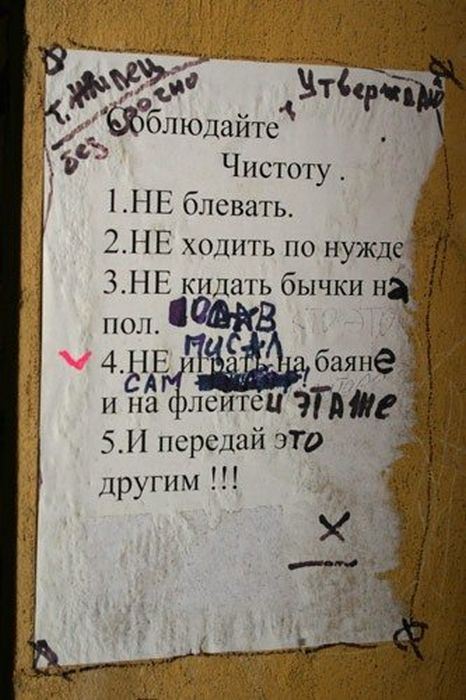 т. Жилец
без срочно
Утверждаю
Соблюдайте
Чистоту .
1.НЕ блевать.
2.НЕ ходить по нужде
3.НЕ кидать бычки на
пол.
ПИСАЛ
4.НЕ играть на баяне
САМ !
и на флейте и ЭТАЖЕ
5.И передай это
другим !!!
X